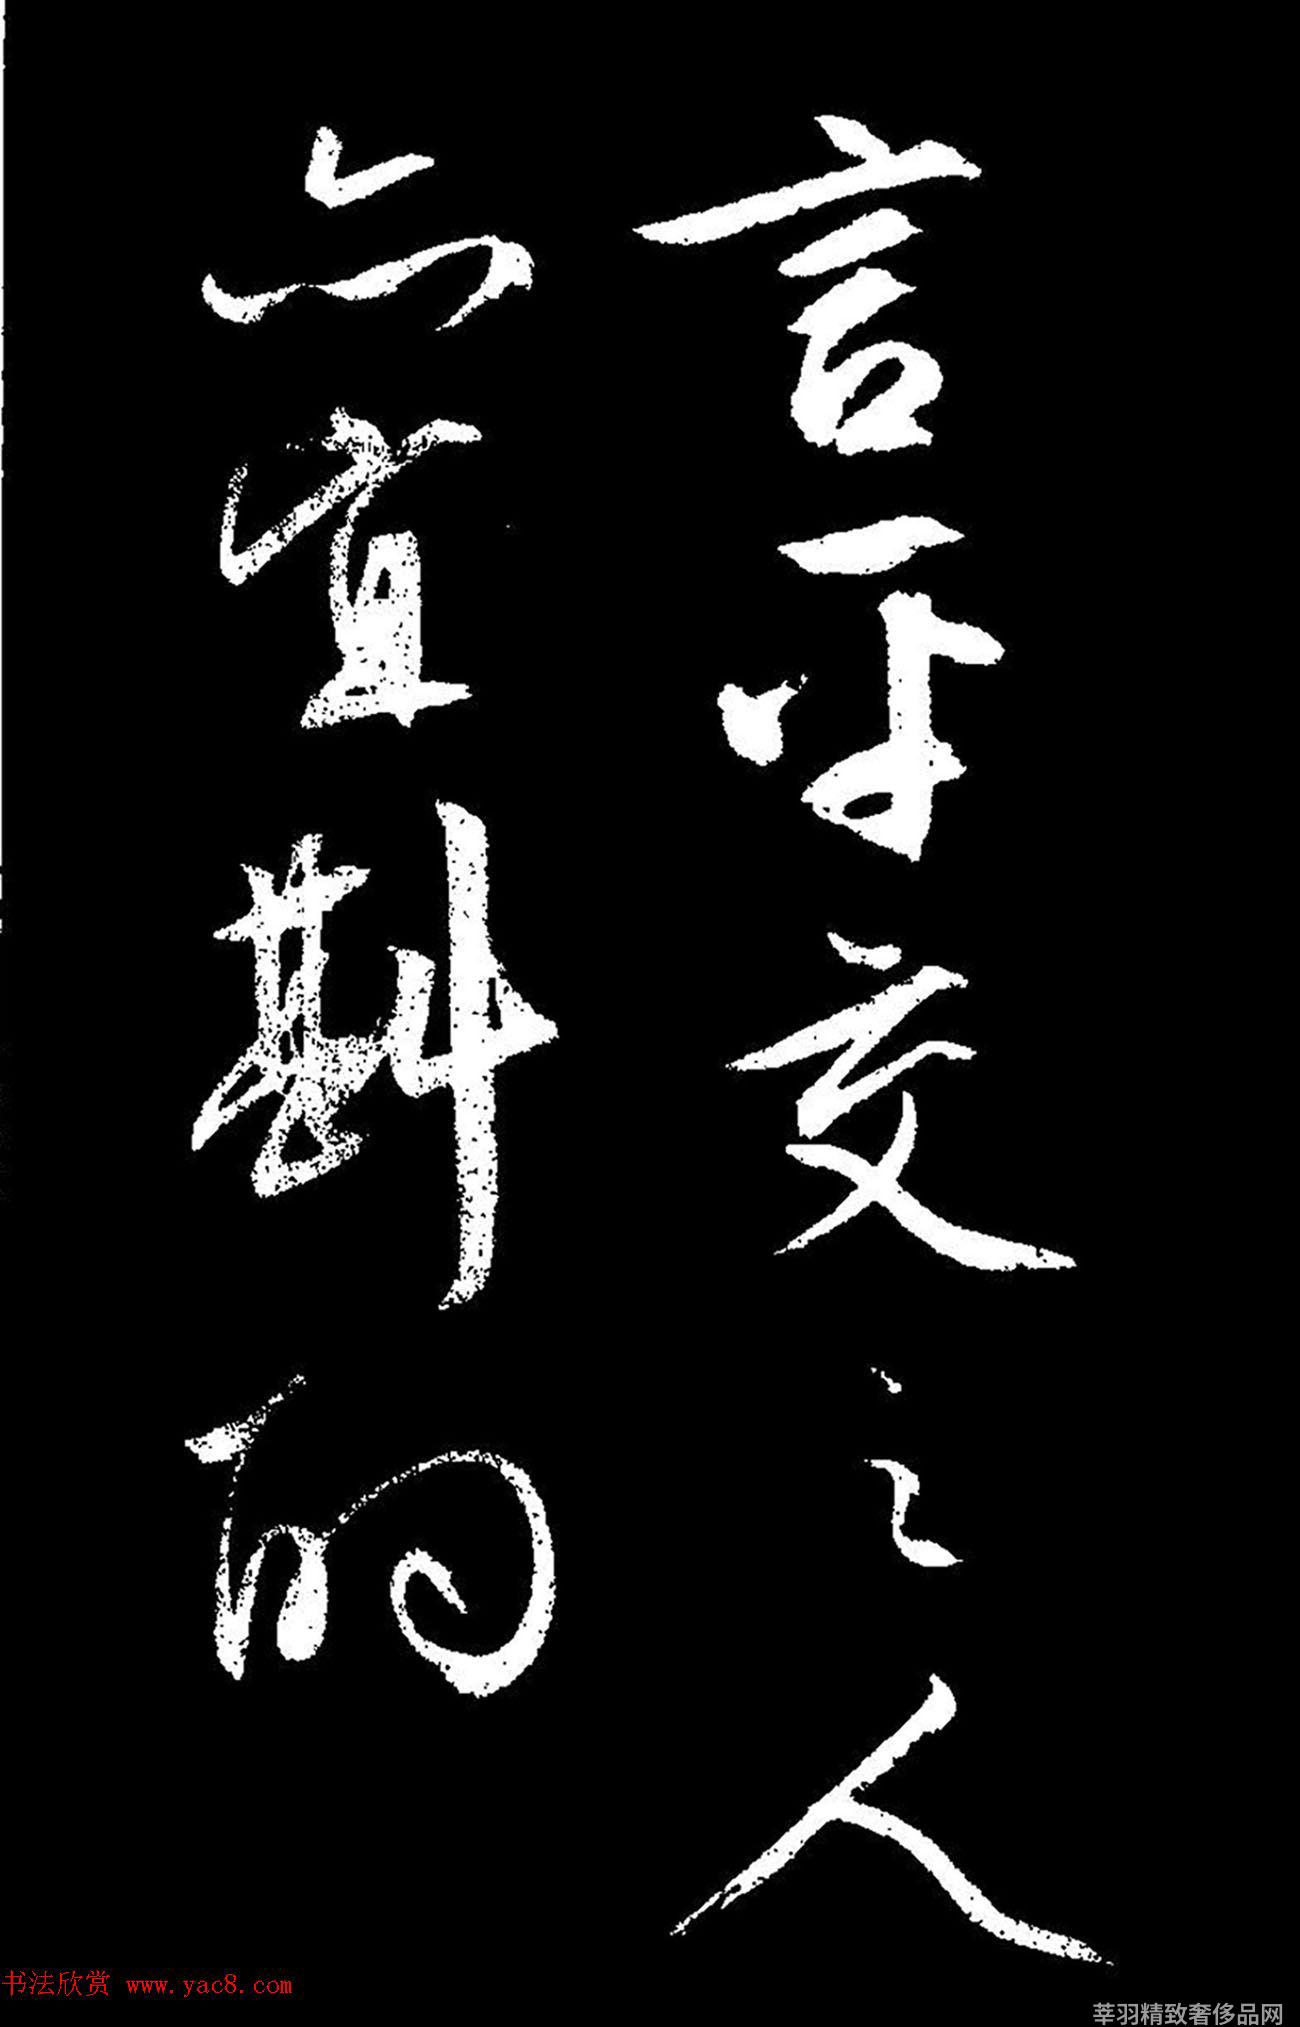 言平交之人
亦宜斟酌
书法欣赏 www.yac8.com
莘羽精致奢侈品网